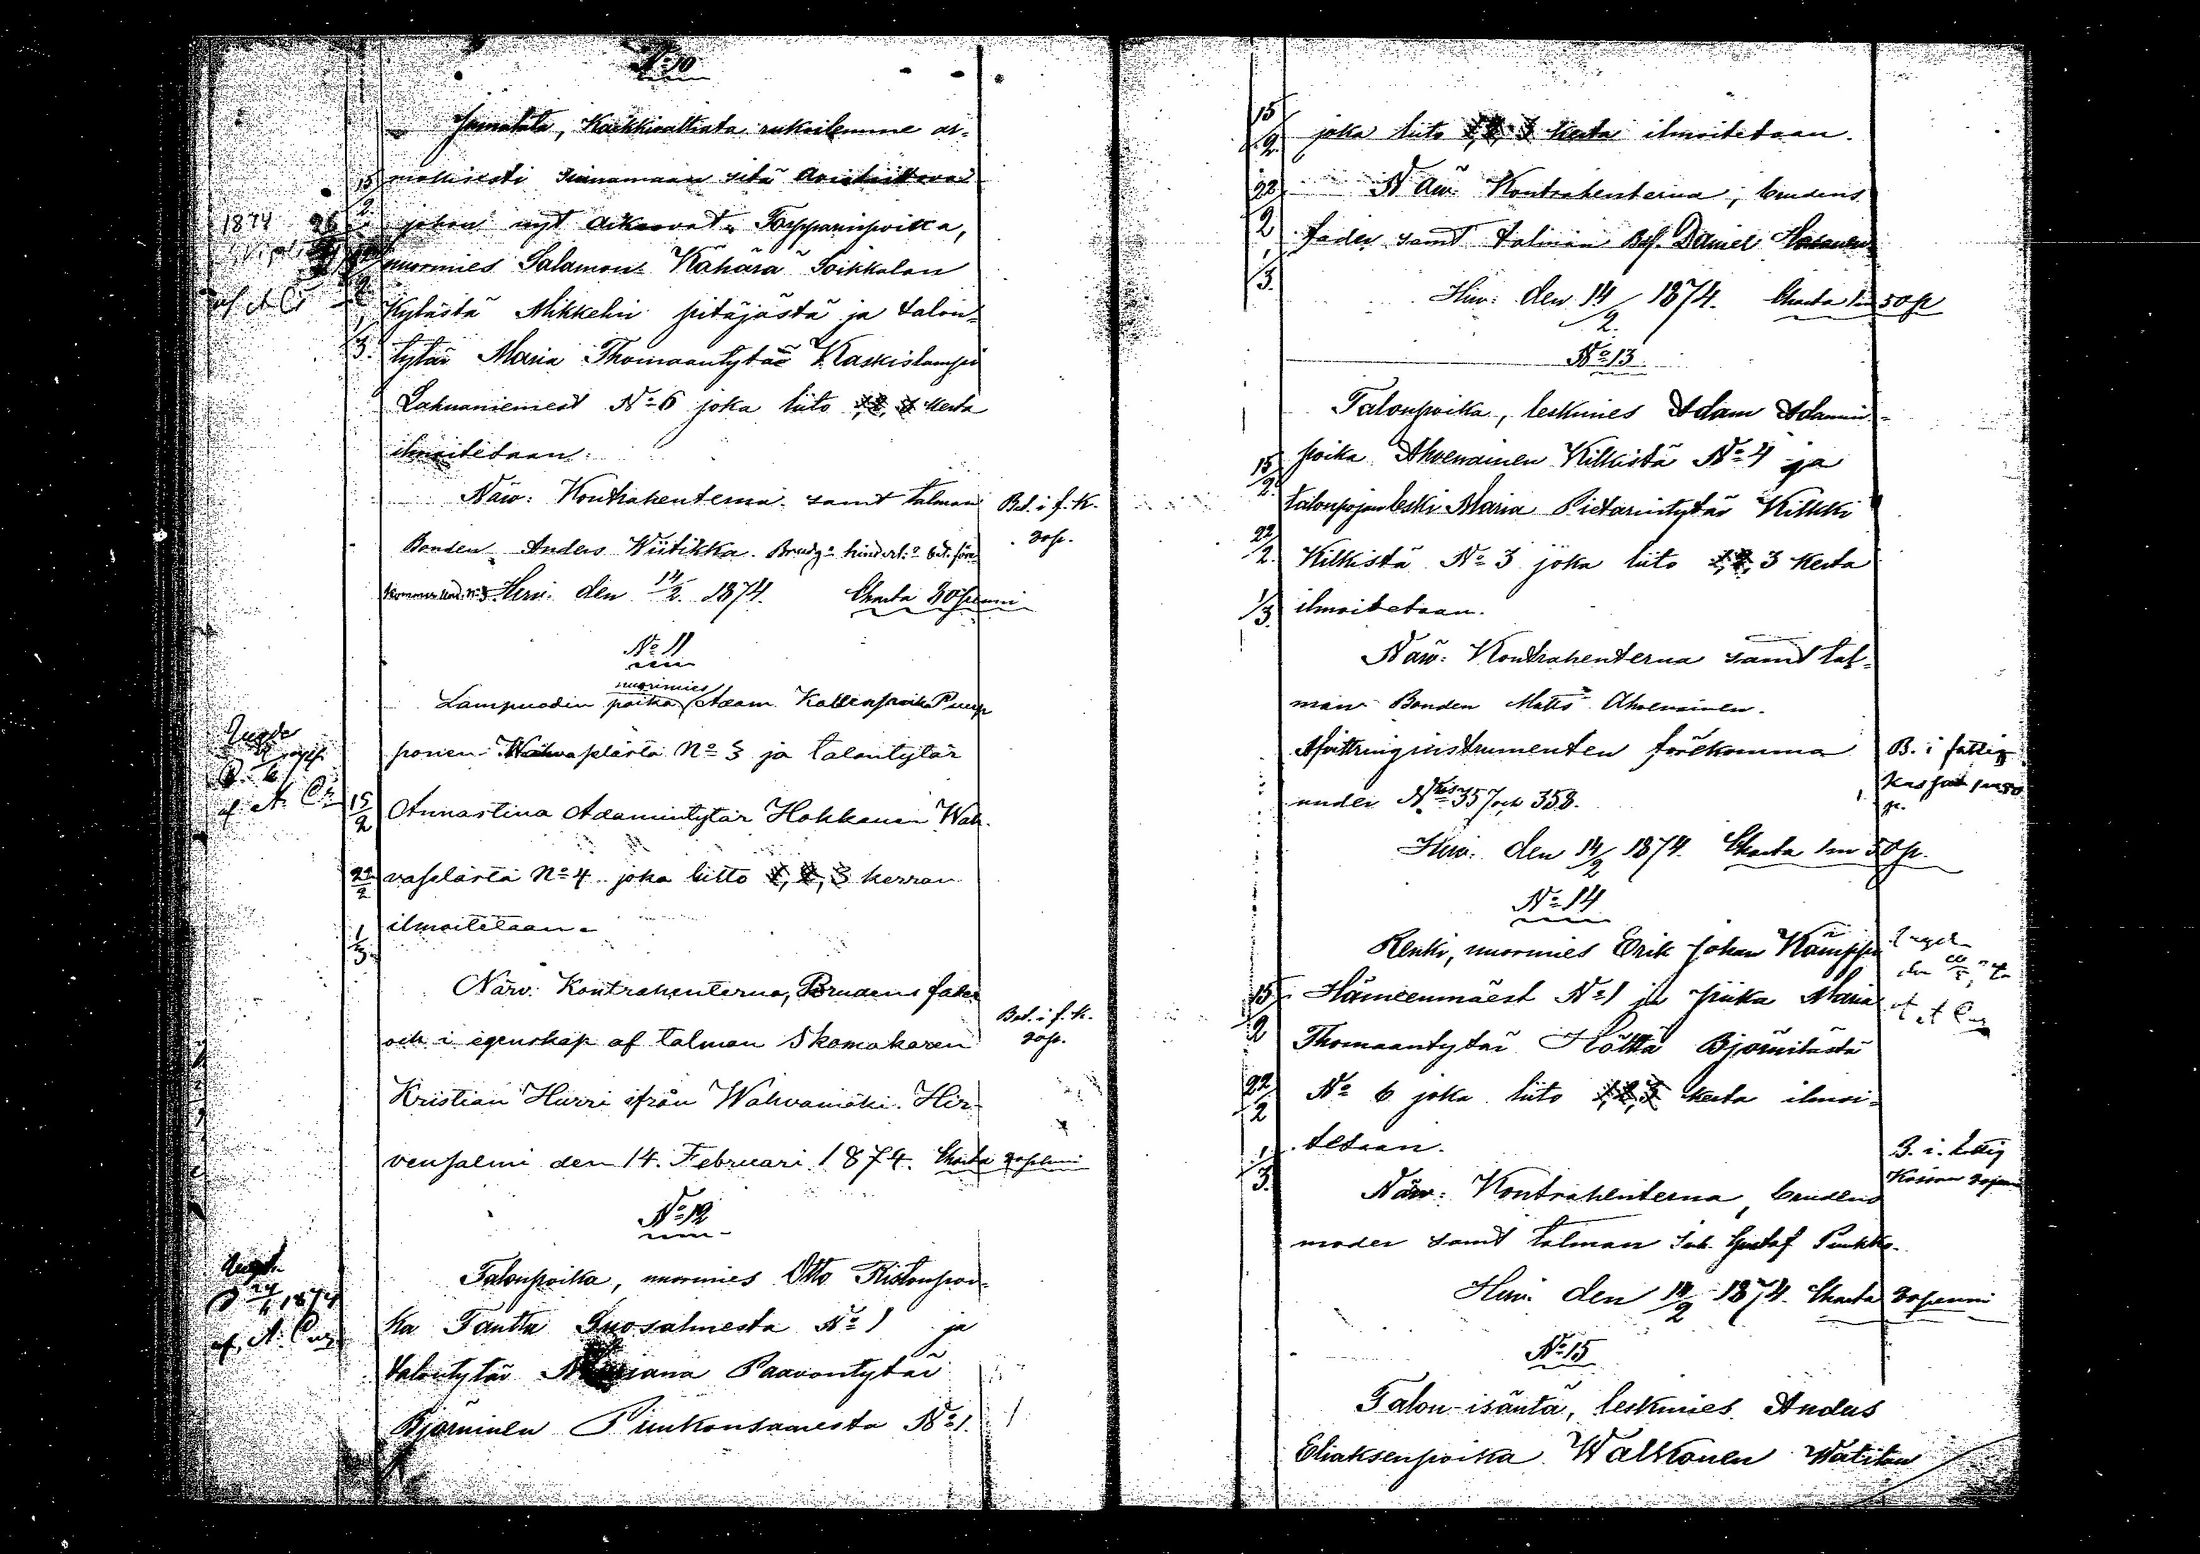 No 10
Jumalata, Kaikkivaltiata rukoilemme ar-
mollisesti siunamaan sitä Avioliittoa
johon nyt aikoovat Torpparinpoika,
nuormies Salamon Kähärä Soikkalan
Kylästä Mikkelin pitäjästä ja talon-
tytär Maria Thomaantytär Kaskislampi
Lahnaniemest No 6 joka liito 1, 2, 3 kerta
ilmoitetaan.
Närv: Kontrahenterna samt talman
Bonden Anders Wiitikka. Brudg. hindersl. bet. före-
kommer und. No 3. Hirv. den 14/2 1874. Charta 30 penni
Bet. i f. K.
1874 26
af A. C
15/2
1/3
No 11
Lampuodin poika nuorimies Adam Kallenpoika Pump
ponen Wahvaselästä No 3 ja talontytär
Annastina Adamintytär Hokkanen Wah-
vaselästä No 4 joka liitto 1, 2, 3 kerran
ilmoitetaan.
Närv. Kontrahenterna, Brudens fader
och i egenskap af talman Skomakaren
Kristian Hurri ifrån Wahvamäki. Hir-
vensalmi den 14. Februari 1874. Charta 30 penni
Bet. i f. K.
af A. C
15/2
22/2
1/3
No 12
Talonpoika, nuormies Otto Ristonpoi-
ka Tantta Suosalmesta No 1 ja
talontytär Paavontytär
Björninen Puukonsaaresta No 1.
1874
af A. Cur
15/2
joka liito 1, 2, 3 kerta ilmoitetaan.
22/2
Närv: Kontrahenterna, brudens
fader samt talman Daniel
1/3
Hirv: den 14/2 1874. Charta 1m 50p
No 13
Talonpoika, leskimies Adam Adamin-
poika Ahvenainen Kilkistä No 4 ja
talonpojanleski Maria Pietarintytär Kilkki
Kilkistä No 3 joka liito 1, 2, 3 kerta
ilmoitetaan.
15/2
22/2
1/3
Närv: Kontrahenterna samt tal-
man Bonden Matts Ahvenainen.
Afvittringinstrumenten förekomma
under No 357 och 358.
B. i fattig
Hirv. den 14/2 1874. Charta 1m 50p.
No 14
Renki, nuormies Erik Johan Kämppi
Hämeenmäest No 1 ja piika Maria
Thomaantytär Höltta Björnilästä
No 6 joka liito 1, 2, 3 kerta ilmoi-
tetaan.
af A Cur
15/2
22/2
1/3
Närv: Kontrahenterna, brudens
moder samt talman Gustaf
Hirv. den 14/2 1874. Charta 30 penni
B. i. fattig
Kassan 30 penni
No 15
Talon-isäntä, leskimies Anders
Eliaksenpoika Walkonen